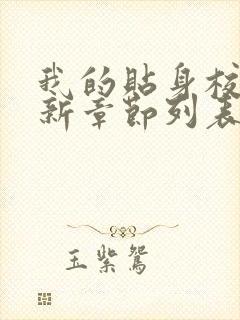 我的贴身校
新章节列表
玉紫鸳